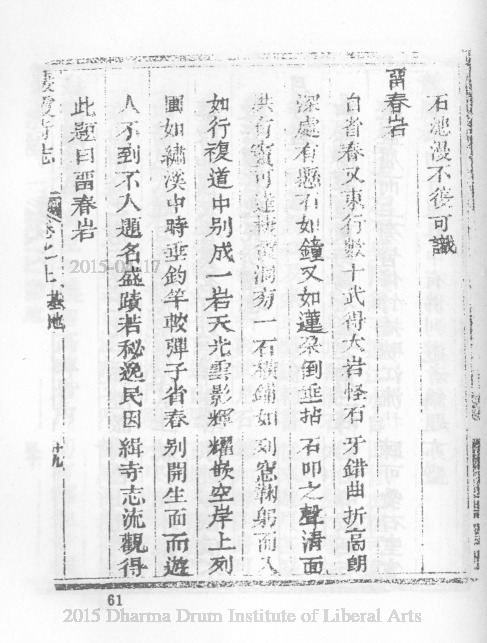 石漶漫不復可識
畱春岩
自省春又東行數十武得大岩怪石牙錯曲折高朗
深處有懸石如鐘又如蓮朶倒垂拈石叩之聲清面
洪有竇可達棲霞洞旁一石橫鋪如列窓鞠躬而入
如行複道中别成一岩天光雲影輝耀嵌空岸上列
圃如繡漢中時垂釣竿較彈子省春别開生面而遊
人不到不入題名盛蹟若秘逸民因緝寺志流觀得
此題曰畱春岩
寺志 卷之上 基地 十九
61
2015 Dharma Drum Institute of Liberal Arts